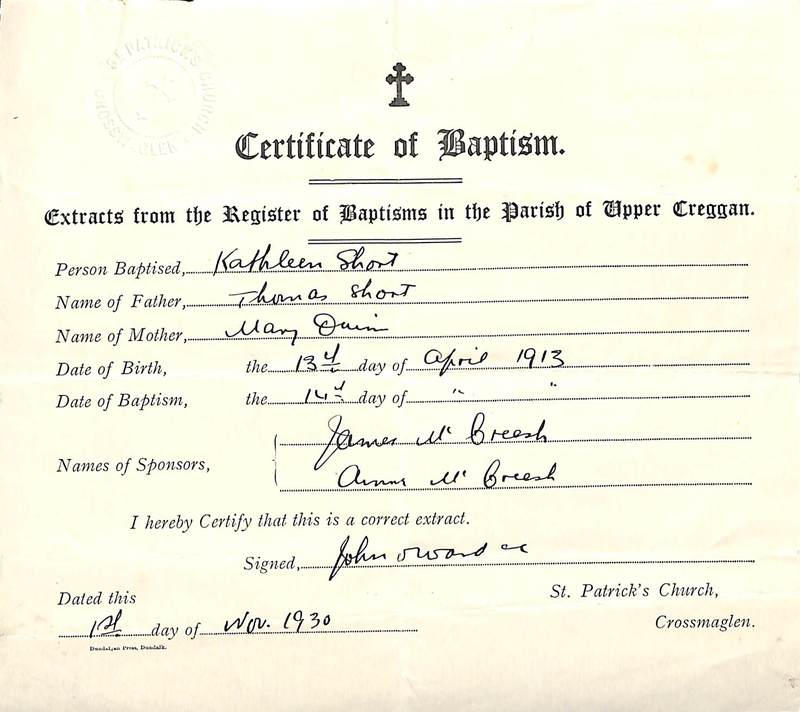 ST PATRICK'S CHURCH
Certificate of Baptism.
Extracts from the Register of Baptisms in the Parish of Upper Creggan.
Person Baptised, Kathleen Short
Name of Father, Thomas Short
Name of Mother, Mary Quinn
Date of Birth, the 13th day of April 1913
Date of Baptism, the 14th day of " "
Names of Sponsors,
James Mc Creesh
Annie Mc Creesh
I hereby Certify that this is a correct extract.
Signed, John
St. Patrick's Church,
Dated this
1st day of Nov. 1930
Crossmaglen.
Dundalgan Press, Dundalk.